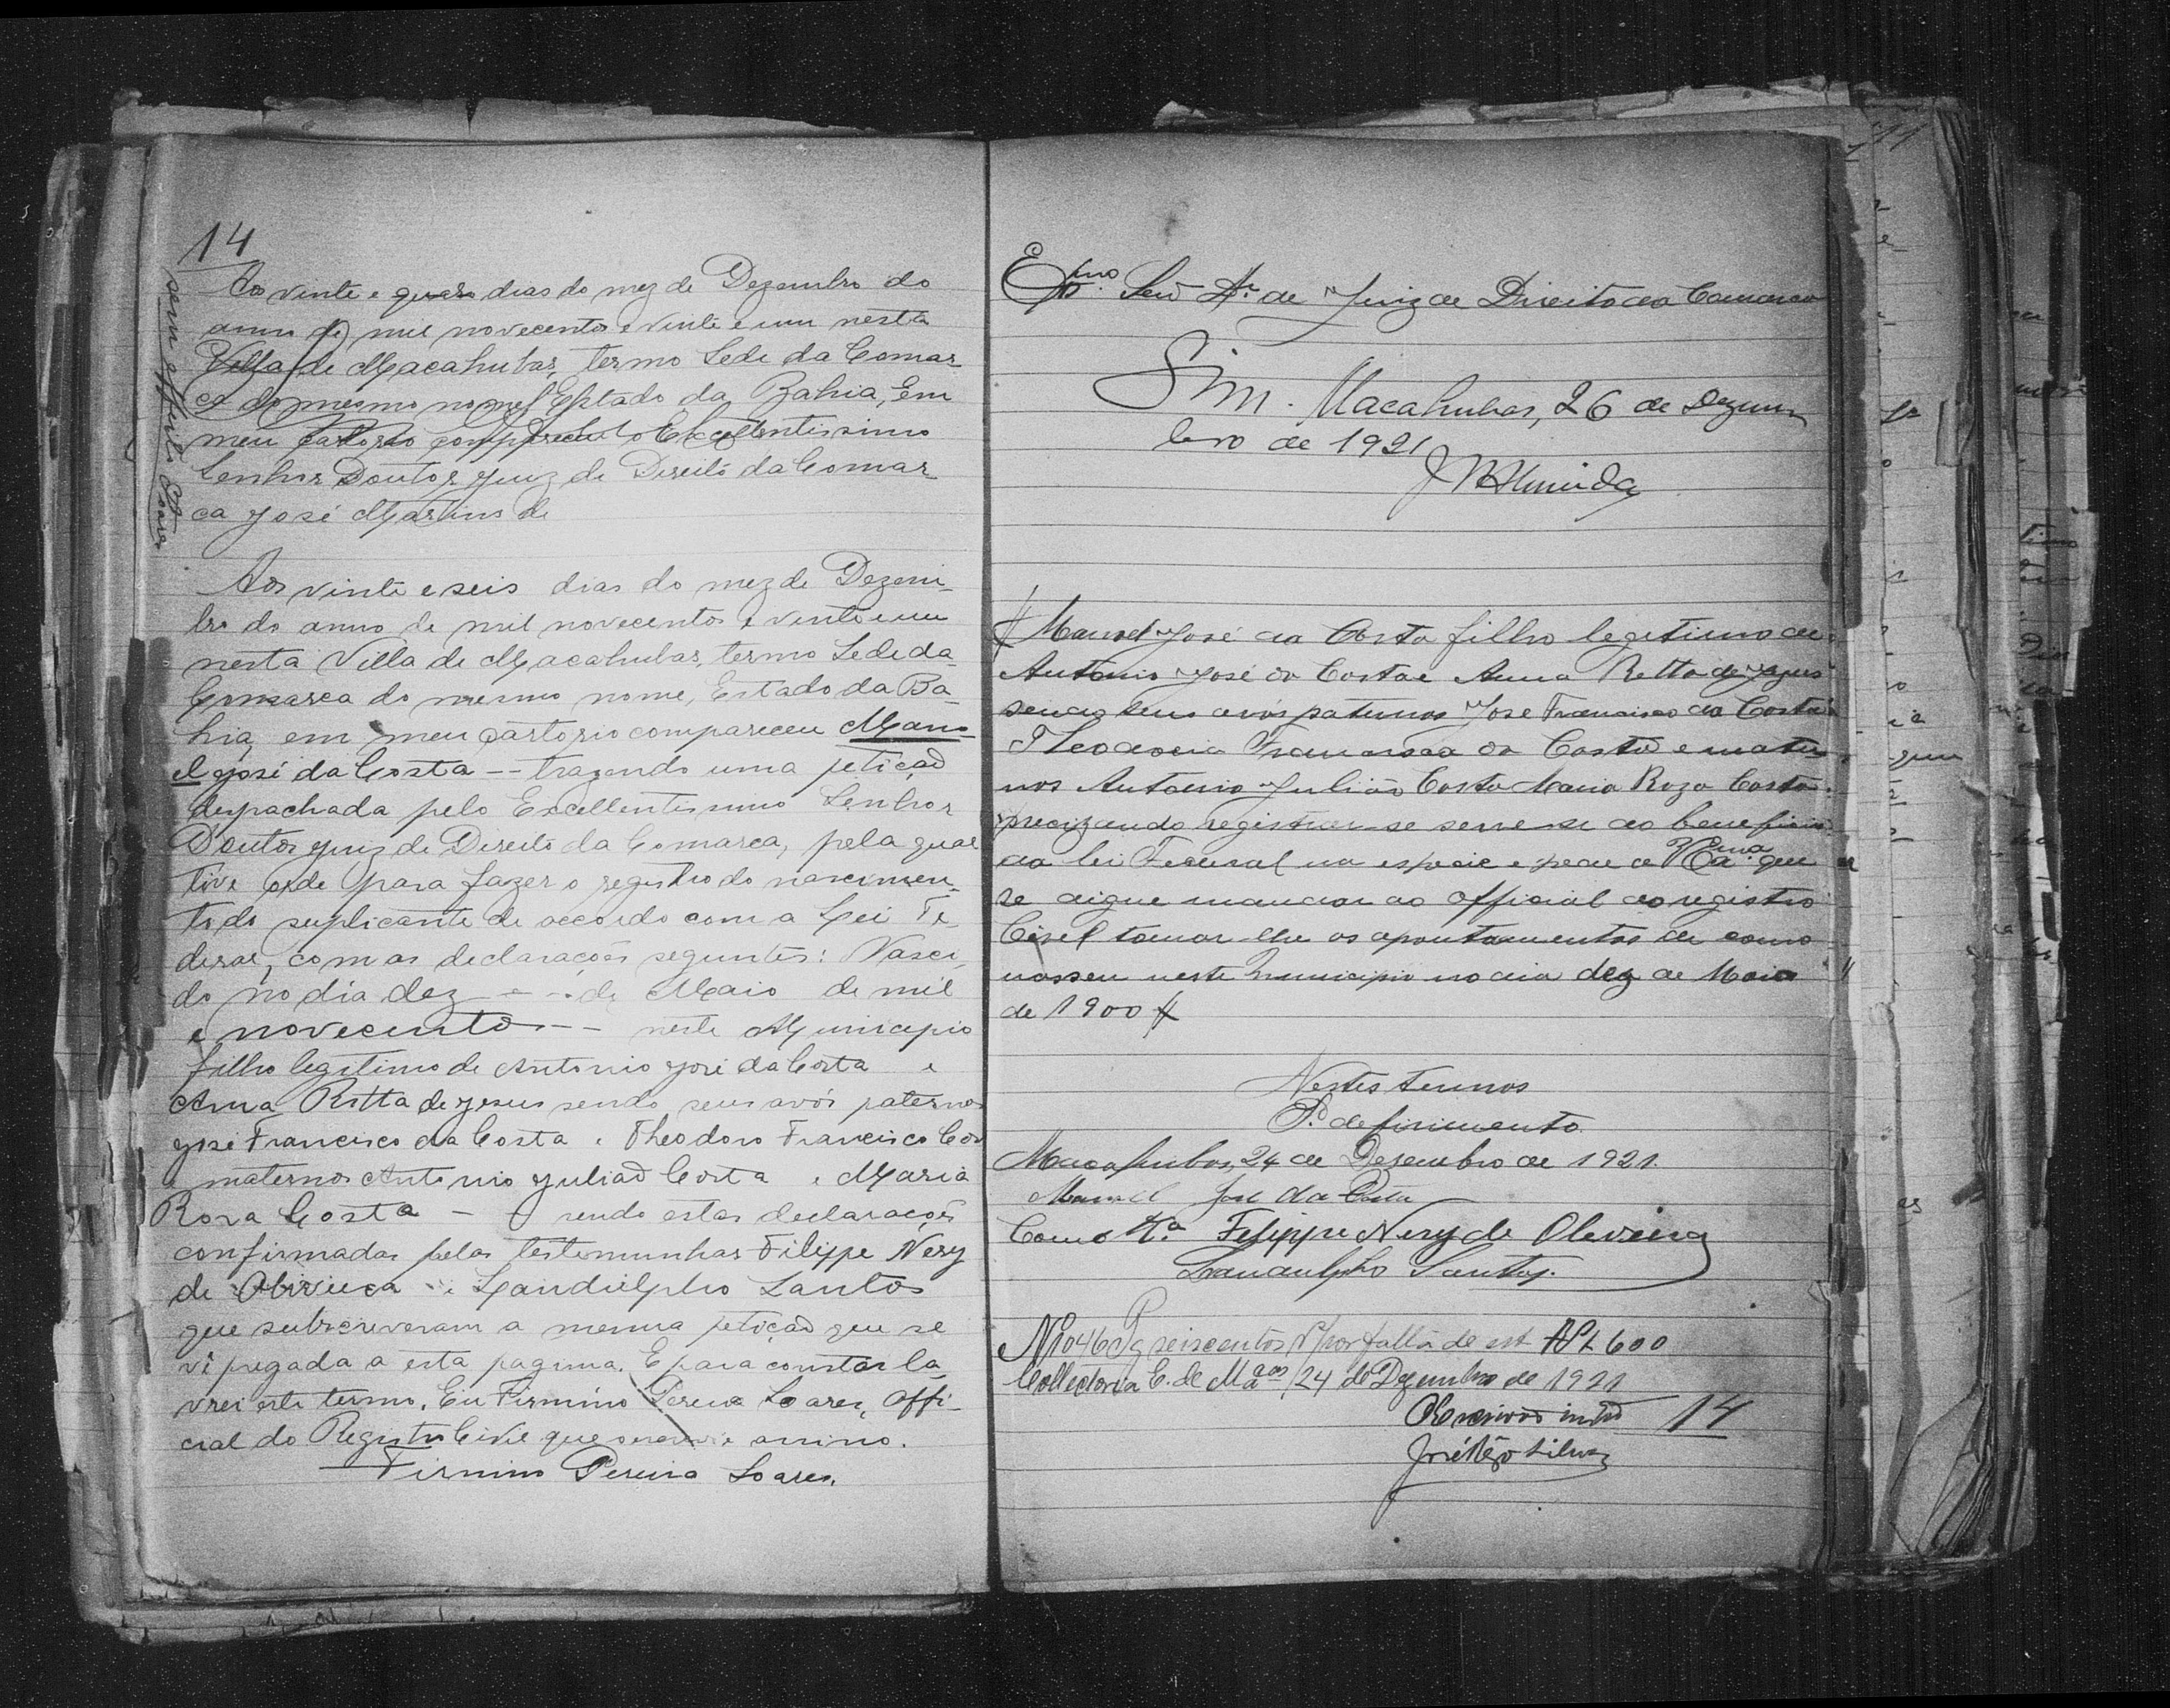 14
Aos vinte e quatro dias do mez de Dezembro do
anno de mil novecentos e vinte e um nesta
Villa de Macahubas, termo Sede da Comar
ca do mesmo nome Estado da Bahia, Em
meu Cartorio compareceu o Excellentissimo
Senhor Doutor Juiz de Direito da Comar
ca José Martins de
sem effeito Soares
Aos vinte e seis dias do mez de Dezem-
bro do anno de mil novecentos e vinte e um
nesta Villa de Macahubas, termo Sede da
Comarca do mesmo nome, Estado da Ba-
hia, em meu cartorio compareceu Mano
el José da Costa -- trazendo uma petição
despachada pelo Excellentissimo Senhor
Doutor Juiz de Direito da Comarca, pela qual
tive orde para fazer o registro do nascimen-
to do suplicante de accordo com a Lei Fe
deral, com as declarações seguntes: Nasci
do no dia dez - - - de Maio de mil
e novecentos -- neste Municipio
filho legitimo de Antonio José da Costa e
Anna Ritta de Jesus sendo seus avós paternos
José Francisco da Costa e Theodoro Francisco Cos
e maternos Antonio Julião Costa e Maria
Rosa Costa - sendo estas declarações
confirmadas pelas testemunhas Filippe Nery
de Oliveira e Landulpho Santos
que subscreveram a mesma petição que se
vê pregada a esta pagina. E para constar la
vrei este termo. Eu Firmino Pereira Soares, Offi-
cial do Registro Civil que escrevi e assino.
Firmino Pereira Soares.
Exmo. Senr Dr. de Juiz de Direito da Comarca
Sim. Macahubas, 26 de Dezem
bro de 1921
J M Almeida
Manoel José da Costa filho legitimo de
Antonio José da Costa e Anna Ritta de Jezus
sendo seus avós paternos José Francisco da Costa
Theodosia Francisca da Costa e mater
nos Antonio Julião Costa Maria Roza Costa
precizando registrar-se serve-se do beneficio
da lei Federal na especie e pede a V Excia. que
se digne mandar ao Official do registro
Civel tomar-lhe os apontamentos de como
nasseu neste municipio no dia dez de Maio
de 1900
Nestes termos
P. defirimento
Macahubas, 24 de Desembro de 1921.
Manoel José da Costa
Como Ta Felippe Nery de Oliveira
Landulpho Santos.
N 1046 Pg seiscentos rs por falta de est 600
Collectoria E. de Macas 24 de Dezembro de 1921
O Escrivão 14